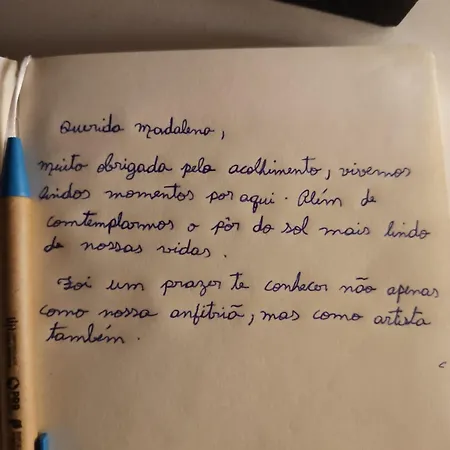 Querida Madalena,
muito obrigada pelo acolhimento, vivemos
lindos momentos por aqui. Além de
comtemplarmos o pôr do sol mais lindo
de nossas vidas.
Foi um prazer te conhecer não apenas
como nossa anfitriã, mas como artista
também.